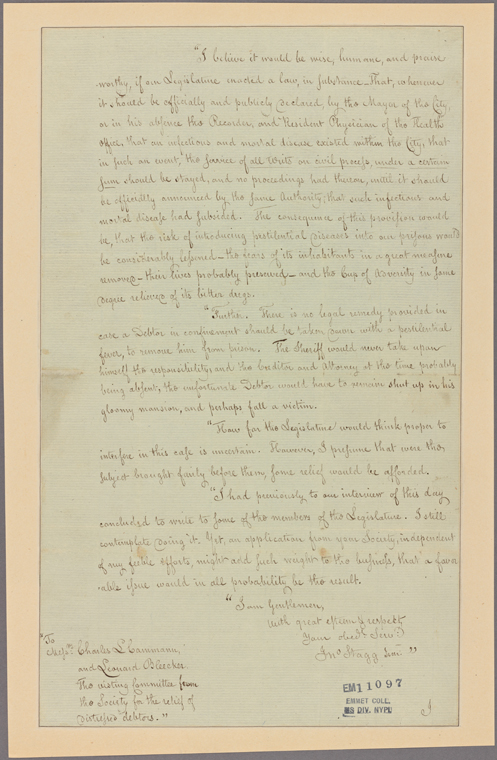 "I believe it would be wise, humane, and praise
worthy, if our Legislature enacted a law, in substance That, whenever
it should be officially and publicly declared, by the Mayor of the City,
or in his absence the Recorder, and Resident Physician of the Health
Office, that an infectious and mortal disease existed within the City, that
in such an event, the service of all Writs on civil process, under a certain
sum should be stayed, and no proceedings had thereon, until it should
be officially announced by the same Authority, that such infectious and
mortal disease had subsided. The consequence of this provision would
be, that the risk of introducing pestilential diseases into our prisons would
be considerably lessened – the fears of its inhabitants in a great measure
removed – their lives probably preserved – and the Cup of Adversity in some
degree relieved of its bitter dregs.
"Further. There is no legal remedy provided in
case a Debtor in confinement should be taken down with a pestilential
fever, to remove him from prison. The Sheriff would never take upon
himself the responsibility, and the Creditor and Attorney at the time probably
being absent, the unfortunate Debtor would have to remain shut up in his
gloomy mansion, and perhaps fall a victim.
"How far the Legislature would think proper to
interfere in this case is uncertain. However, I presume that were the
subject brought fairly before them, some relief would be afforded.
"I had previously to our interview of this day
concluded to write to some of the members of the Legislature. I still
contemplate doing it. Yet, an application from your Society, independent
of my feeble efforts, might add such weight to the business, that a favor
able issue would in all probability be the result.
"I am Gentlemen,
With great esteem & respect
Your obedt. Servt.
Jno. Stagg Junr."
"To
Messrs. Charles L. Cammann,
and Leonard Bleecker
The visiting Committee from
the Society for the relief of
distressed debtors."
EM11097
EMMET COLL.
MS DIV. NYPL